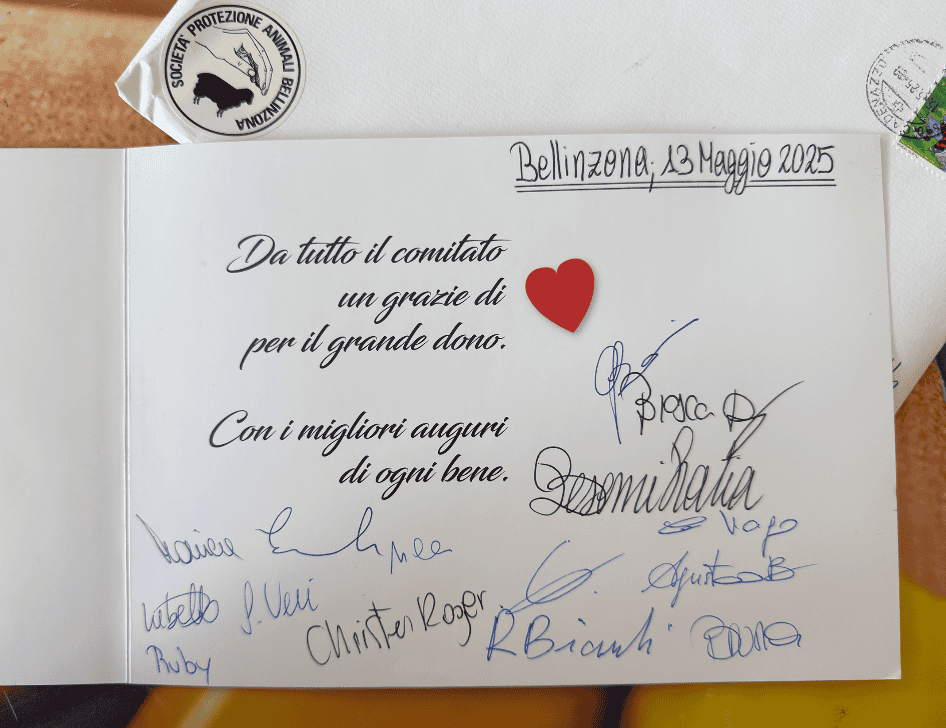 SOCIETA' PROTEZIONE ANIMALI BELLINZONA
CADENAZZO
Bellinzona, 13 Maggio 2025
Da tutto il comitato
un grazie di
per il grande dono.
Con i migliori auguri
di ogni bene.
Besomi Katia
Vago
Agustoni B
Christen Roger
R Bianchi
Ruby